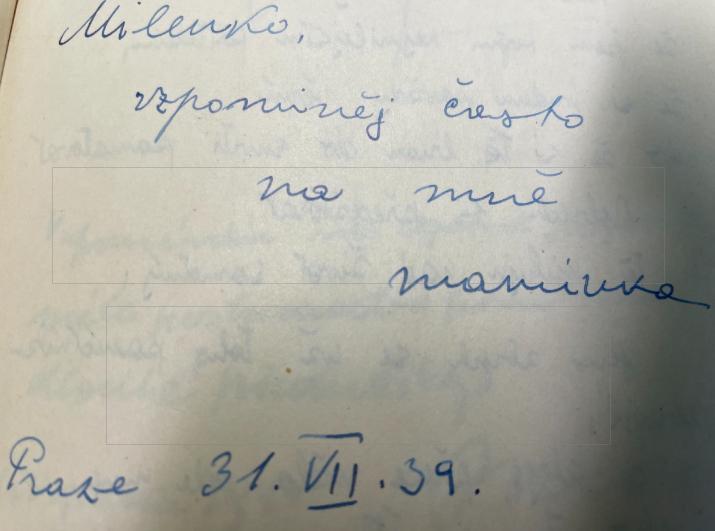 Milenko,
vzpomíněj často
na mně
maminka
Praze 31. VII. 39.